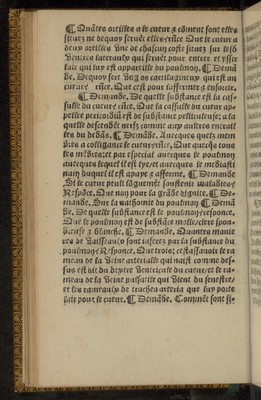 ¶ Quātes oreilles a le cueur & cōment sont elles
situez ne dequoy seruēt elles rñce. Que le cueur a
deux oreilles vne de chascun coste situez sur ses
ventres lateraulx qui seruēt pour entrer et yssir
lair qui luy est appareille du poulmon. ¶ Demā
de. Dequoy sert ung os cartilagineux qui est au
cueur rñce. Que cest pour saffermer & enforcir.
¶ Demande. De quelle substance est la cap
sulle du cueur rñce. Que la capsulle du cueur ap
pellee pericordiū est de substance pelliculeuse; a la
quelle descendēt nerfz comme aux autres entrailles
du dedās. ¶ Demāde. Auecques quelz mem
bres a colligance le cueur rñce. Que auecqs tous
les mēbres et par especial auecques le poulmon
auecques lequel il est lye et auecques le mediasti
num duquel il est apuye & afferme. ¶ Demande
Si le cueur peult longuement soustenir maladies;
Respōce. Que non pour sa grāde dignite. ¶ De-
mande. Sur la nathomie du poulmon ¶ Demā
de. De quelle substance est le poulmon; responce.
Que le poulmon est de substāce molle, clere spon-
gieuse & blanche. ¶ Demande. Quantes manie
res de vaisseaulx sont inserez par la substance du
poulmon; Responce. Que trois; cestassauoir le ra
meau de la veine arterialle qui naist comme des-
sus est dit du dextre ventricule du cueur; et le ra-
meau de la veine pulsatile qui vient du senestre;
et les rameaulx de trachea arteria que luy porte
lair pour le cueur. ¶ Demāde. Comment sont si-